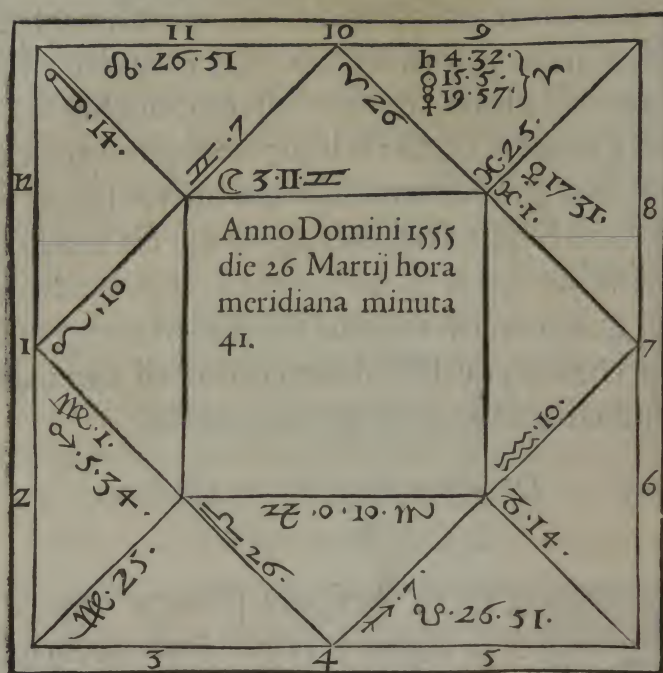 11 10 9
☊. 26.51
♄ 4.32.
☉ 15.5. } ♈
☿ 19.57.
♋.14.
♊.7
♈ 26
♓.25.
♀ 17.31.
♓.1.
12
☾ 3.11 ♊
8
Anno Domini 1555
die 26 Martij hora
meridiana minuta
41.
♌.10
1
7
♍.1.
♂.5.34.
♒.10.
2
6
♎ 26.
♑.14.
♍.25.
♐.7.
☋.26.51.
3 4 5